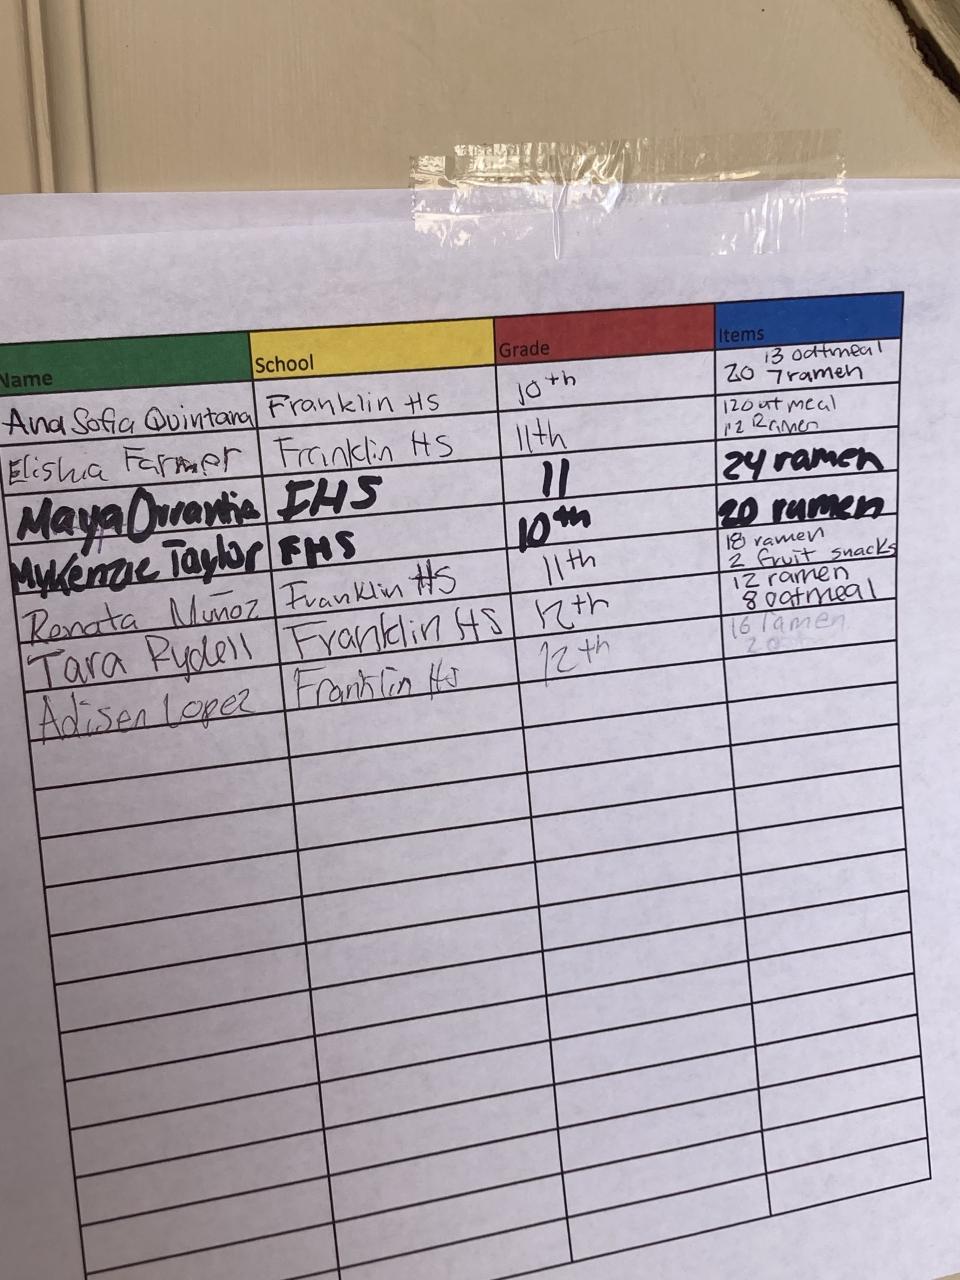 Name School Grade Items
Ana Sofia Quintana Franklin HS 10th 13 oatmeal
20 7 ramen
Elisha Farmer Franklin HS 11th 12 oatmeal
12 Ramen
Maya Orrantia FHS 11 24 ramen
Mykenzie Taylor FHS 10th 20 ramen
Renata Muñoz Franklin HS 11th 18 ramen
2 fruit snacks
Tara Rydell Franklin HS 12th 12 ramen
8 oatmeal
Adisen Lopez Franklin HS 12th 16 ramen